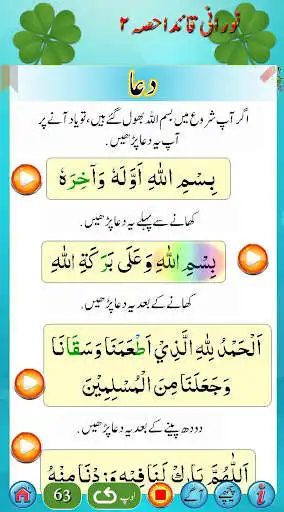 نورانی قائدا حصہ ۲
دعا
اگر آپ شروع میں بسم اللہ بھول گئے ہیں، تو یاد آنے پر
آپ یہ دعا پڑھیں۔
بِسْمِ اللّٰهِ اَوَّلَهٗ وَآخِرَهٗ
کھانے سے پہلے یہ دعا پڑھیں۔
بِسْمِ اللّٰهِ وَعَلٰى بَرَكَةِ اللّٰهِ
کھانے کے بعد یہ دعا پڑھیں۔
اَلْحَمْدُ لِلّٰهِ الَّذِيْ اَطْعَمَنَا وَسَقَانَا
وَجَعَلَنَا مِنَ الْمُسْلِمِيْنَ
دودھ پینے کے بعد یہ دعا پڑھیں۔
اَللّٰهُمَّ بَارِكْ لَنَا فِيْهِ وَزِدْنَا مِنْهُ
63
اوپر
آگے
پیچھے
i